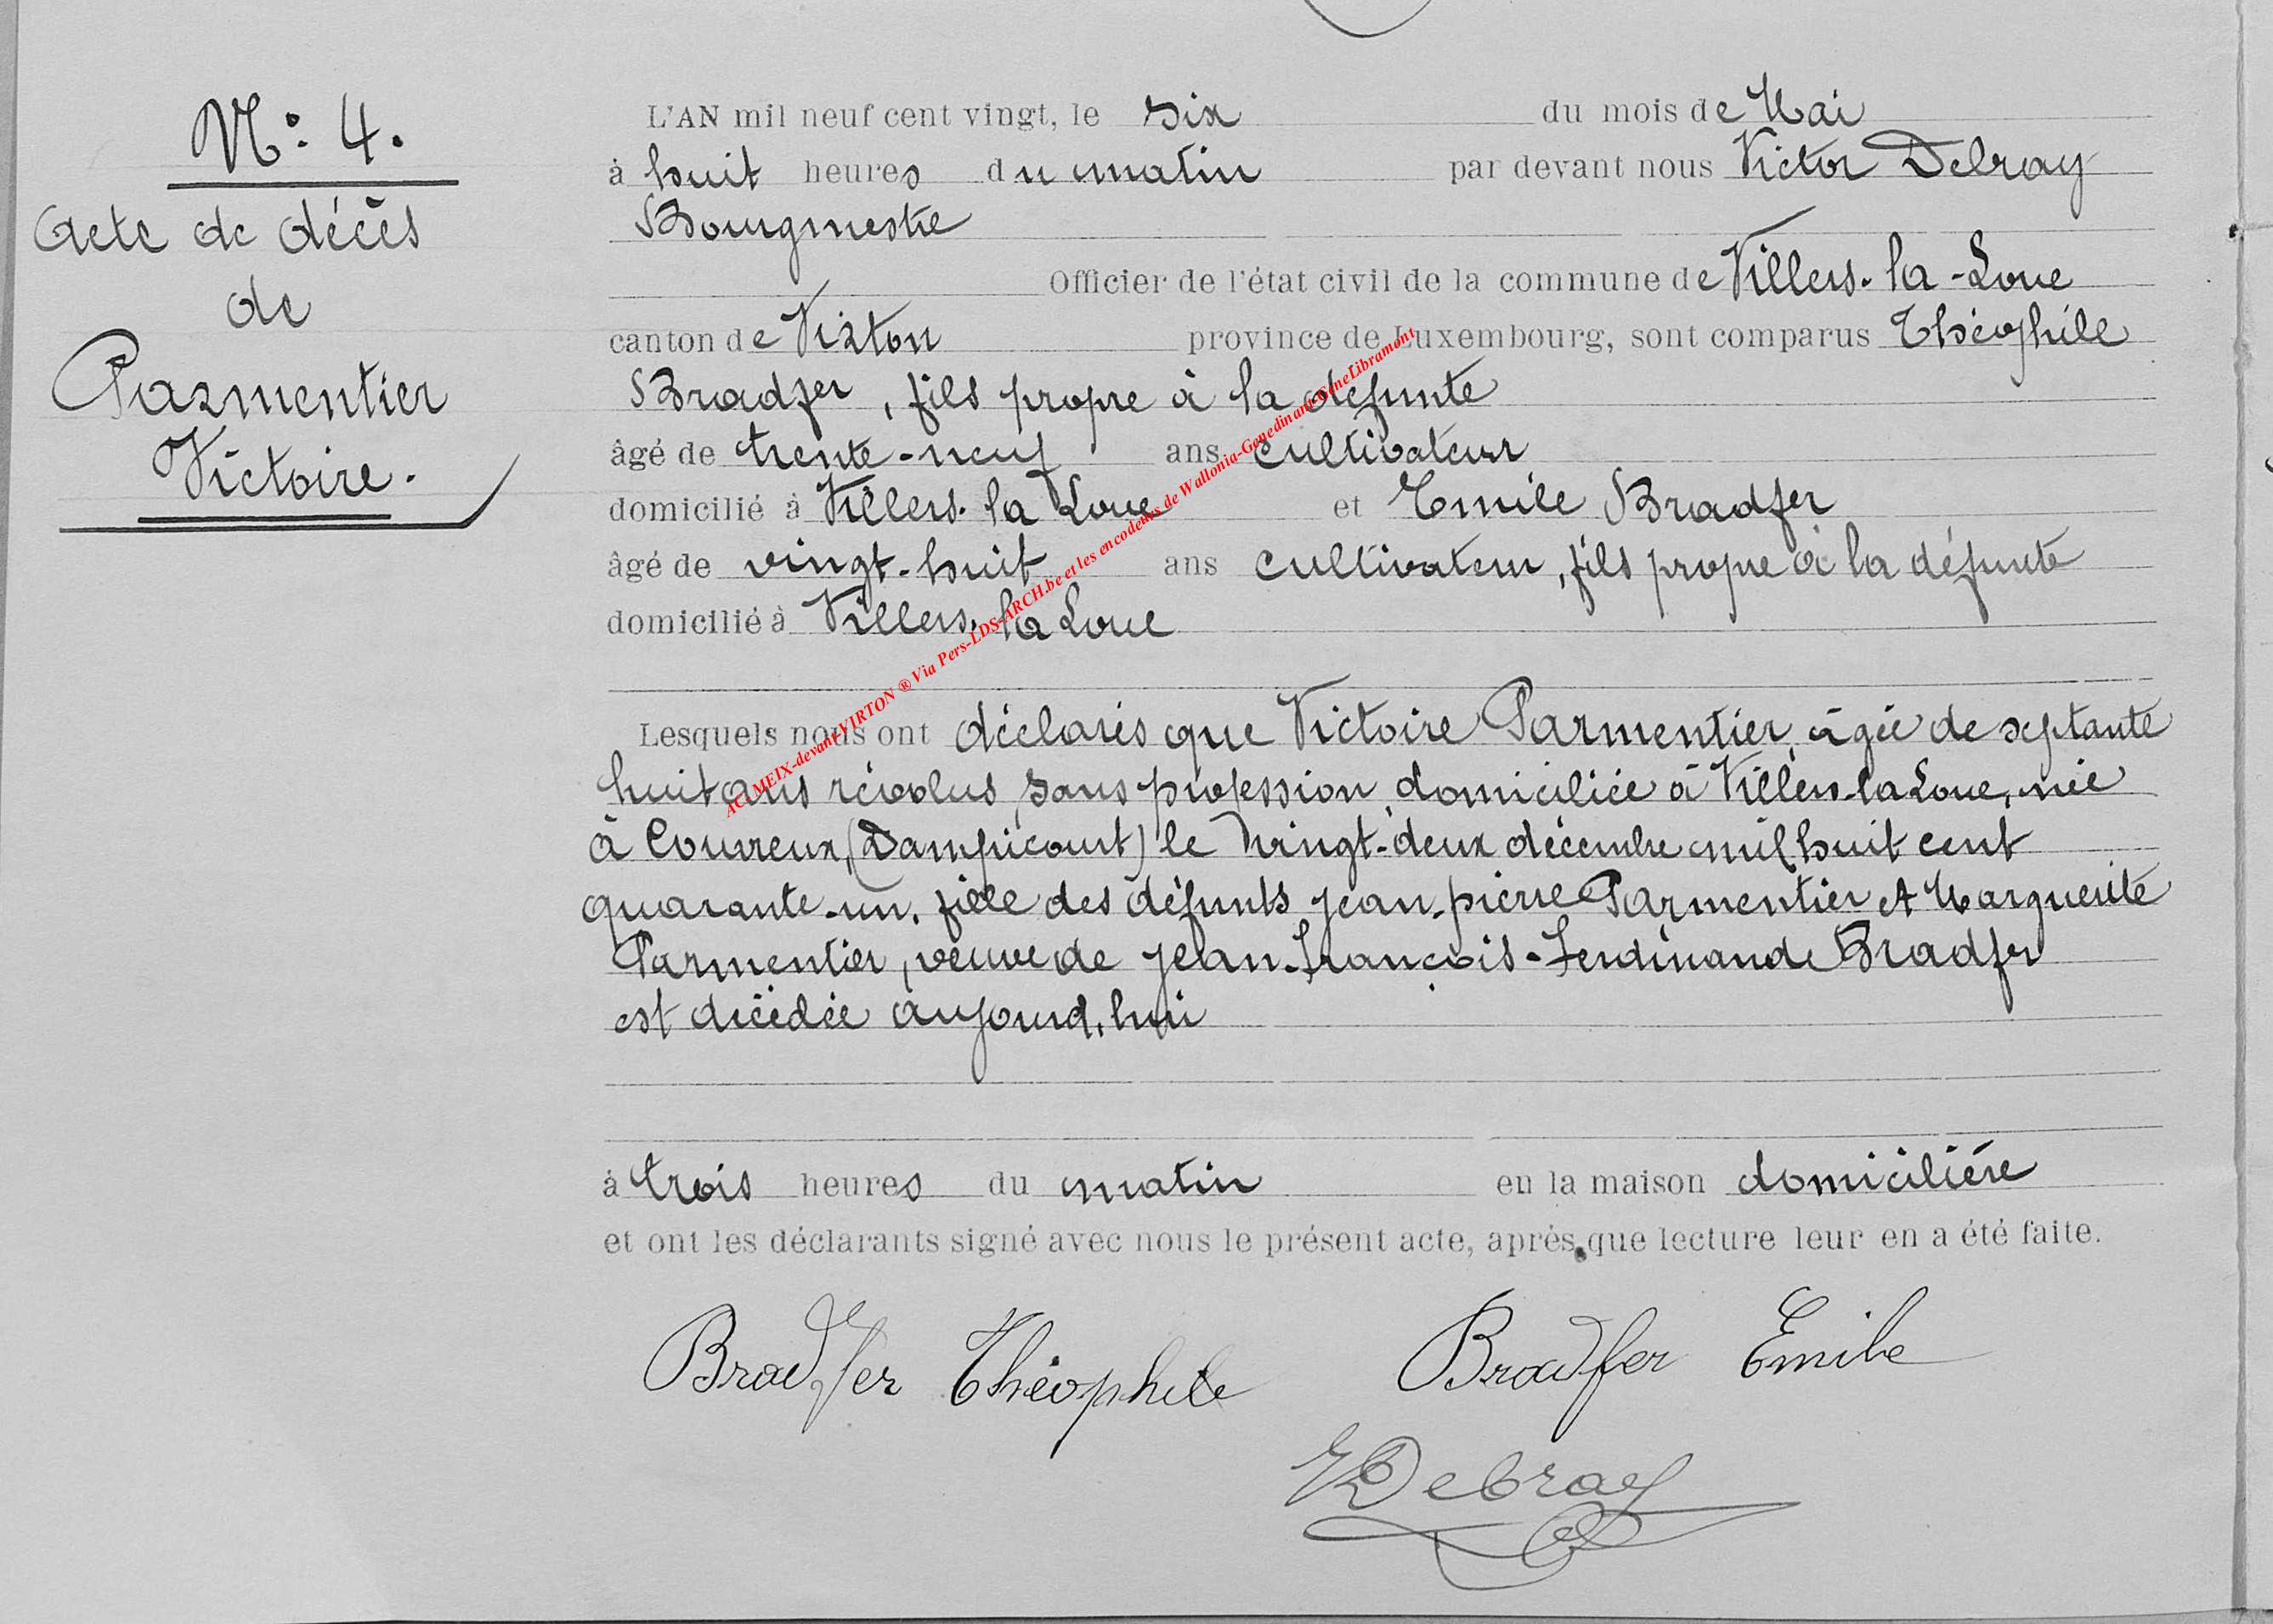 N° 4.
Acte de décès
de
Parmentier
Victoire.
L'AN mil neuf cent vingt, le six du mois de Mai
à huit heures du matin par devant nous Victor Debray
Bourgmestre
Officier de l'état civil de la commune de Villers-la-Loue
canton de Virton province de Luxembourg, sont comparus Théophile
Bradfer, fils propre à la défunte
âgé de trente-neuf ans cultivateur
domicilié à Villers-la Loue et Emile Bradfer
âgé de vingt-huit ans cultivateur, fils propre à la défunte
domicilié à Villers-la Loue
Lesquels nous ont déclarés que Victoire Parmentier, âgée de septante
huit ans révolus, sans profession, domiciliée à Villers-la Loue, née
à Couvreux, (Dampicourt) le vingt-deux décembre mil huit cent
quarante-un, fille des défunts Jean-pierre Parmentier et Marguerite
Parmentier, veuve de Jean-François-Ferdinande Bradfer
est décédée aujourd'hui
à trois heures du matin en la maison domicilière
et ont les déclarants signé avec nous le présent acte, après que lecture leur en a été faite.
Bradfer Théophile Bradfer Emile
V Debray
AC. MEIX-devant-VIRTON ® Via Pers-LDS-ARCH.be et les encodeurs de Wallonia-Genedinant-GeneLibramont